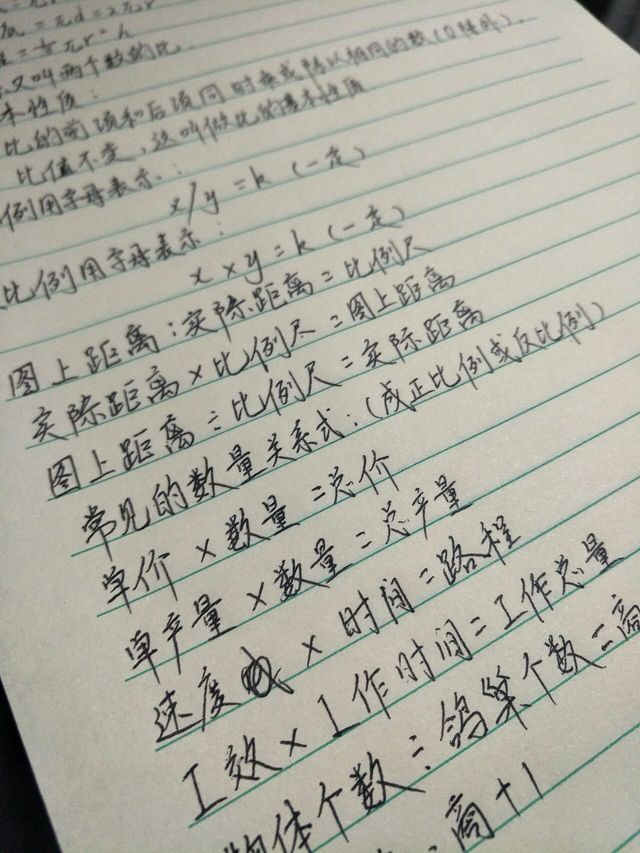 = πd = 2πr
又叫两个数的比.
本性质:
比的前项和后项同时乘或除以相同的数(0除外),
比值不变,这叫做比的基本性质
例用字母表示:
x/y=k (一定)
比例用字母表示:
x×y=k(一定)
图上距离:实际距离=比例尺
实际距离×比例尺=图上距离
图上距离÷比例尺=实际距离
常见的数量关系式:(成正比例或反比例)
单价×数量=总价
单产量×数量=总产量
速度×时间=路程
工效×工作时间=工作总量
物体个数÷鸽巢个数=商
商+1